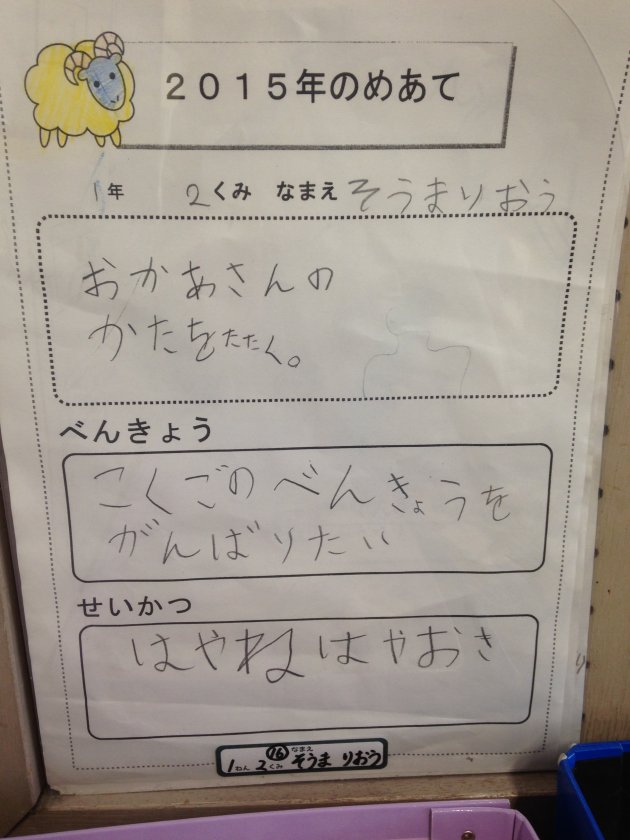 2015年のめあて
1年 2くみ なまえ そうまりおう
おかあさんの
かたをたたく。
べんきょう
こくごのべんきょうを
がんばりたい
せいかつ
はやねはやおき
1ねん 2くみ 16 なまえ そうま りおう